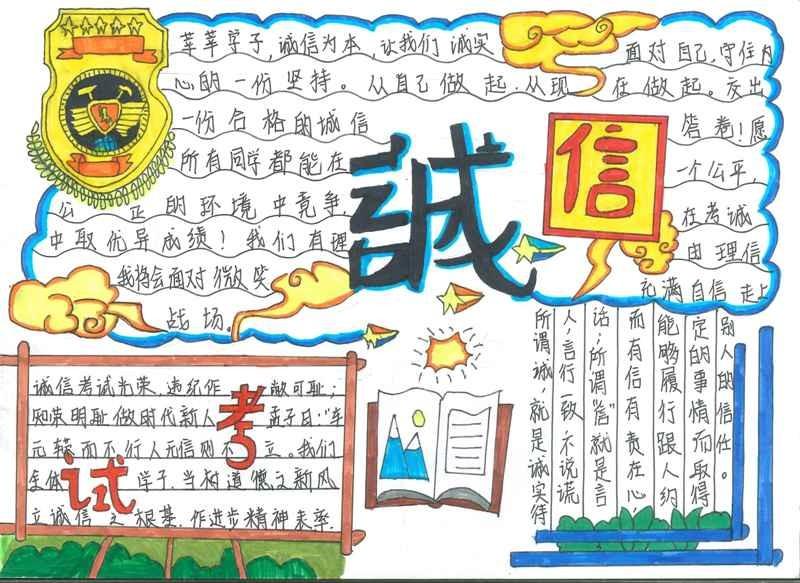 莘莘学子,诚信为本,让我们 诚实 面对自己,守住内
心的一份坚持。从自己做起.从现在做起。交出
一份合格的诚信 答卷!愿
所有同学都能在 一个公平,
公正的环境中竞争, 在考诚
中取优异成绩!我们有理 由理信
我将会面对微笑 充满自信 走上
战场.
誠
信
诚信考试光荣,违纪作 敝可耻;
知荣明耻做时代新人 孟子曰:"车
无辕而不行人无信则不立。我们
全体 学子,当树道德之新风
立诚信之根基.作进步精神表率.
考
试
所谓,诚,就是诚实待
人,言行一致,不说谎
话;所谓"信"就是言
而有信有责在心,
能够履行跟人约
定的事情而取得
别人的信任。